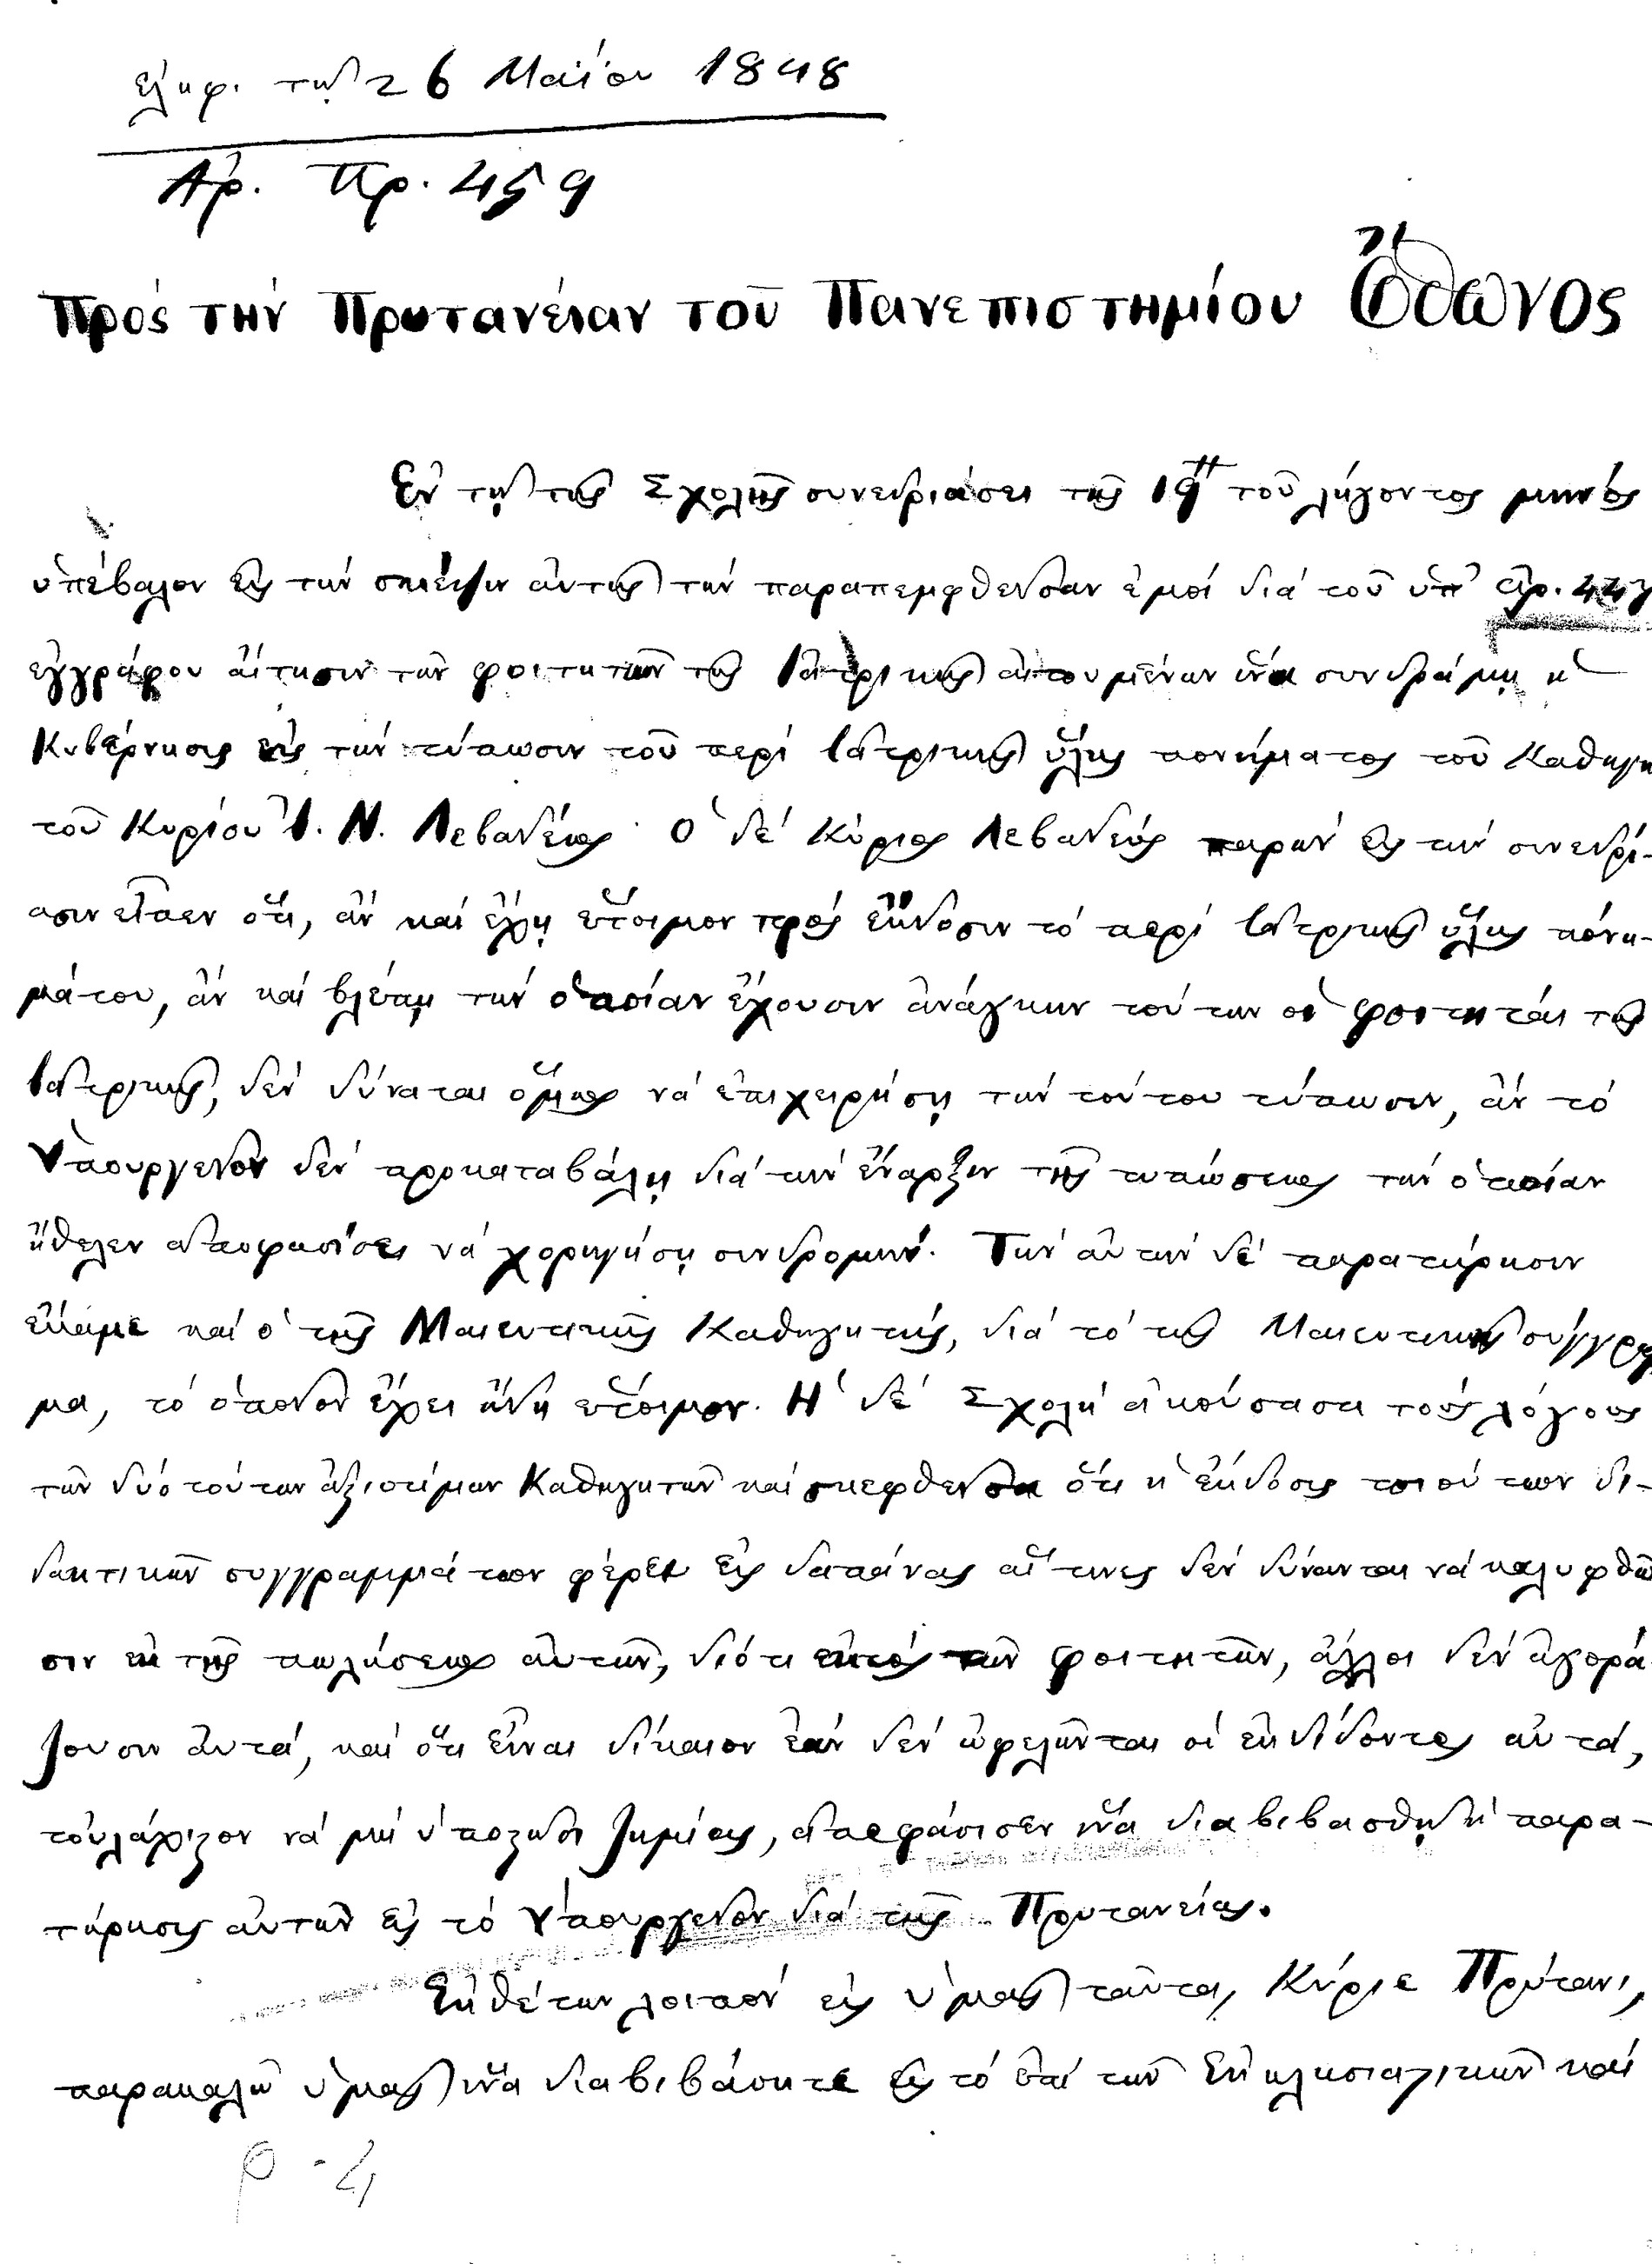 ἐλήφ. τῇ 26 Μαΐου 1848
Ἀρ. Πρ. 459
Πρὸς τὴν Πρυτανείαν τοῦ Πανεπιστημίου Ὄθωνος
Ἐν τῇ τῆς Σχολῆς συνεδριάσει τῆς 19ης τοῦ λήγοντος μηνὸς
ὑπέβαλον εἰς τὴν σκέψιν αὐτῆς τὴν παραπεμφθεῖσαν ἐμοὶ διὰ τοῦ ὑπ' ἀρ.
ἐγγράφου αἴτησιν τῶν φοιτητῶν τῆς Ἰατρικῆς αἰτουμένων ἵνα συνδράμῃ ἡ
Κυβέρνησις εἰς τὴν τύπωσιν τοῦ περὶ Ἰατρικῆς ὕλης πονήματος τοῦ Καθηγη
τοῦ Κυρίου Ἰ. Ν. Λεβαδέως· Ὁ δὲ Κύριος Λεβαδεὺς παρὼν εἰς τὴν συνεδρί-
ασιν εἶπεν ὅτι, ἂν καὶ ἔχῃ ἕτοιμον πρὸς ἔκδοσιν τὸ περὶ Ἰατρικῆς ὕλης πόνη-
μάτου, ἂν καὶ βλέπῃ τὴν ὁποίαν ἔχουσιν ἀνάγκην τούτων οἱ φοιτηταὶ τῆς
Ἰατρικῆς, δὲν δύναται ὅμως νὰ ἐπιχειρήσῃ τὴν τούτου τύπωσιν, ἂν τὸ
Ὑπουργεῖον δὲν προκαταβάλῃ διὰ τὴν ἔναρξιν τῆς τυπώσεως τὴν ὁποίαν
ἤθελεν ἀποφασίσει νὰ χορηγήσῃ συνδρομήν. Τὴν αὐτὴν δὲ παρατήρησιν
ἔκαμε καὶ ὁ τῆς Μαιευτικῆς Καθηγητής, διὰ τὸ τῆς Μαιευτικῆς σύγγραμ
μα, τὸ ὁποῖον ἔχει ἤδη ἕτοιμον. Ἡ δὲ Σχολὴ ἀκούσασα τοὺς λόγους
τῶν δύο τούτων ἀξιοτίμων Καθηγητῶν καὶ σκεφθεῖσα ὅτι ἡ ἔκδοσις τοιούτων δι-
δακτικῶν συγγραμμάτων φέρει εἰς δαπάνας αἵτινες δὲν δύνανται νὰ καλυφθῶ
σιν ἐκ τῆς πωλήσεως αὐτῶν, διότι ἐκτὸς τῶν φοιτητῶν, ἄλλοι δὲν ἀγορά
ζουσιν αὐτά, καὶ ὅτι εἶναι δίκαιον ἐὰν δὲν ὠφελῶνται οἱ ἐκδίδοντες αὐτά,
τοὐλάχιστον νὰ μὴ ὑποστῶσι ζημίας, ἀπεφάσισεν ἵνα διαβιβασθῇ ἡ παρα-
τήρησις αὐτῶν εἰς τὸ Ὑπουργεῖον διὰ τῆς Πρυτανείας.
Ἐκθέτων λοιπὸν εἰς ὑμᾶς ταῦτα, Κύριε Πρύτανι,
παρακαλῶ ὑμᾶς ἵνα διαβιβάσητε εἰς τὸ ἐπὶ τῶν Ἐκκλησιαστικῶν καὶ